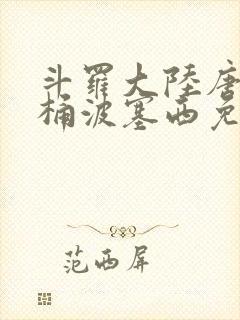 斗羅大陸唐
桶波塞西免
范西屏